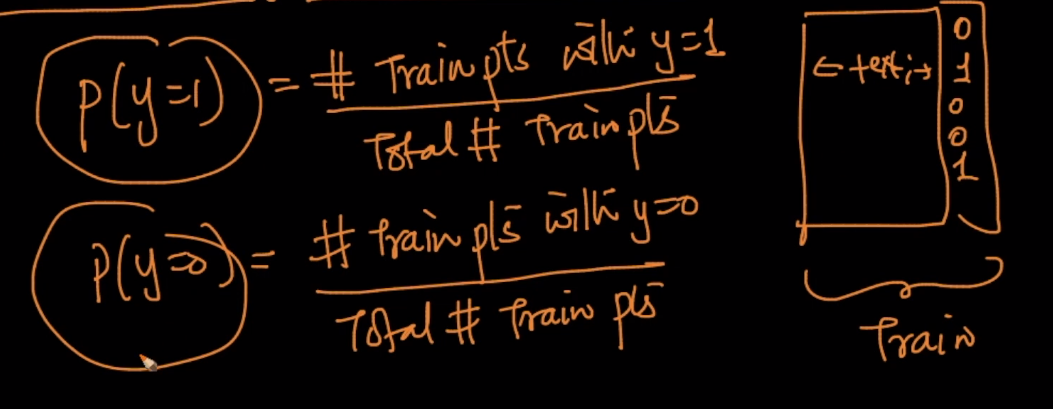 P(y=1) = # Train pts with y=1
Total # Train pts
P(y=0) = # Train pts with y=0
Total # Train pts
← text i →
0
1
0
0
1
Train